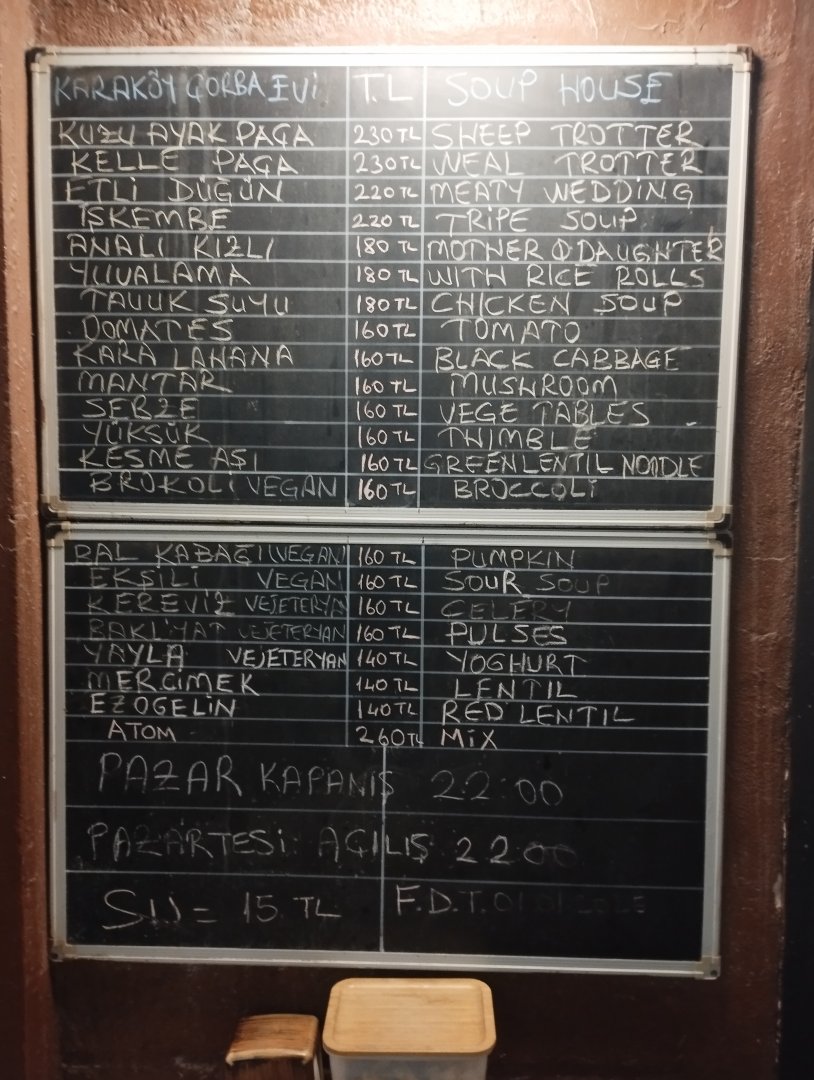 KARAKÖY ÇORBA EVİ T.L SOUP HOUSE
KUZU AYAK PAÇA 230 TL SHEEP TROTTER
KELLE PAÇA 230 TL WEAL TROTTER
ETLİ DÜĞÜN 220 TL MEATY WEDDING
İŞKEMBE 220 TL TRIPE SOUP
ANALI KIZLI 180 TL MOTHER DAUGHTER
YUVALAMA 180 TL WITH RICE ROLLS
TAVUK SUYU 180 TL CHICKEN SOUP
DOMATES 160 TL TOMATO
KARA LAHANA 160 TL BLACK CABBAGE
MANTAR 160 TL MUSHROOM
SEBZE 160 TL VEGE TABLES
YÜKSÜK 160 TL THIMBLE
KESME AŞI 160 TL GREEN LENTIL NOODLE
BROKOLİ VEGAN 160 TL BROCCOLİ
BAL KABAĞI (VEGAN) 160 TL PUMPKIN
EKŞİLİ VEGAN 160 TL SOUR SOUP
KEREVİZ VEJETERYAN 160 TL CELERY
BAKLİYAT VEJETERYAN 160 TL PULSES
YAYLA VEJETERYAN 140 TL YOGHURT
MERCİMEK 140 TL LENTIL
EZOGELİN 140 TL RED LENTIL
ATOM 260 TL MİX
PAZAR KAPANIŞ 22:00
PAZARTESİ: AÇILIŞ 22:00
SU = 15 TL F.D.T. 01.01.2025